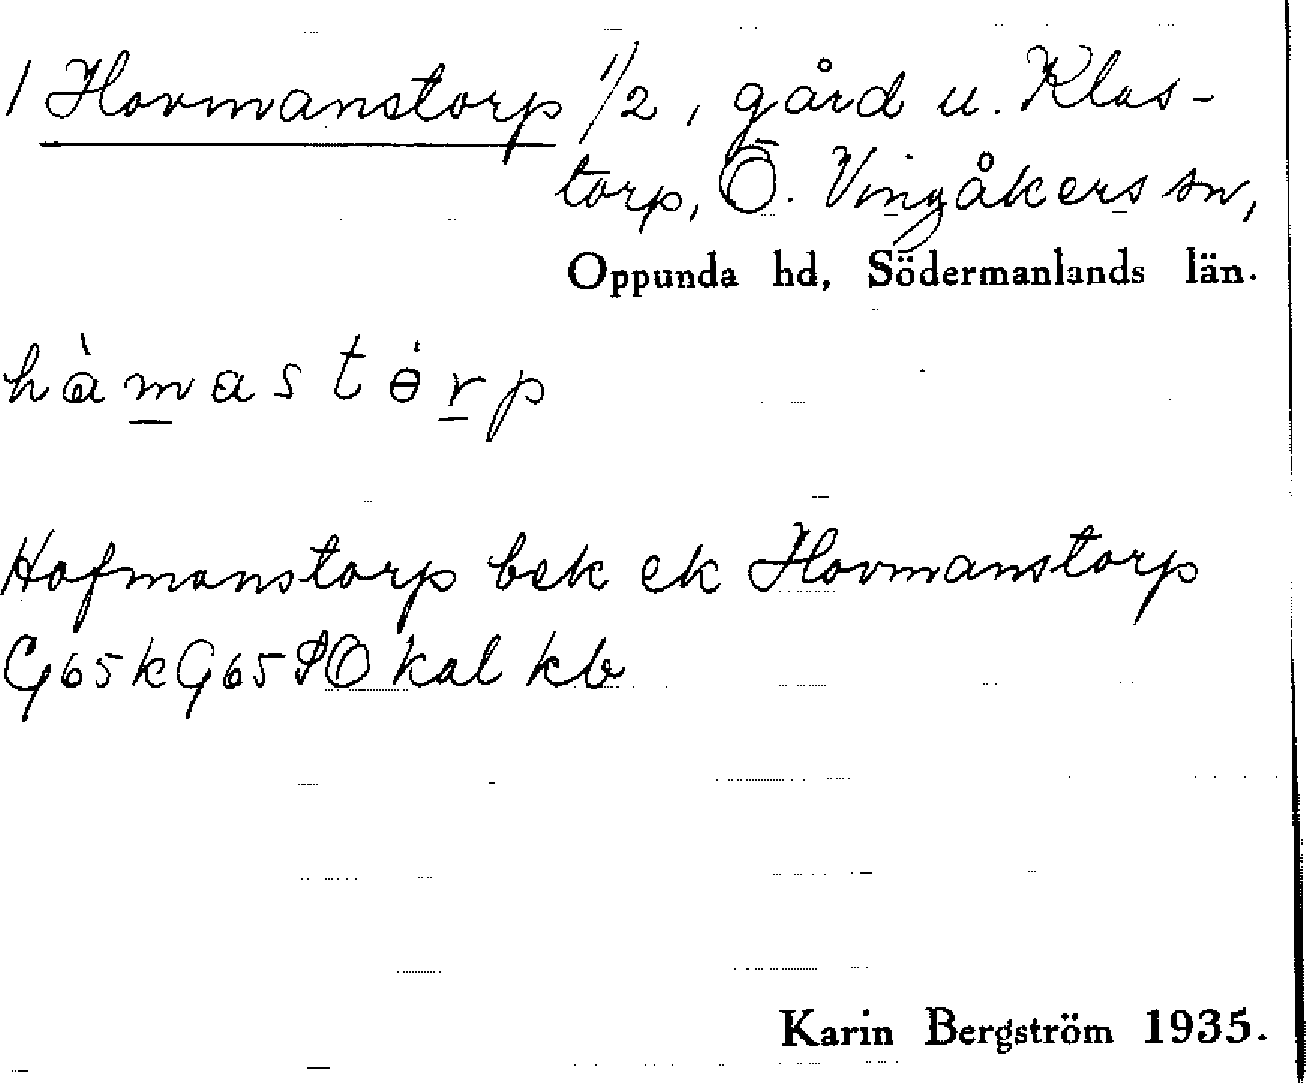 1 Hovmanstorp 1/2, gård u. Klas-
torp, Ö. Vingåkers sn,
Oppunda hd, Södermanlands län.
hàmastɵ́rp
Hofmanstorp bek ek Hovmanstorp
G65k G65 PO kal kb
Karin Bergström 1935.